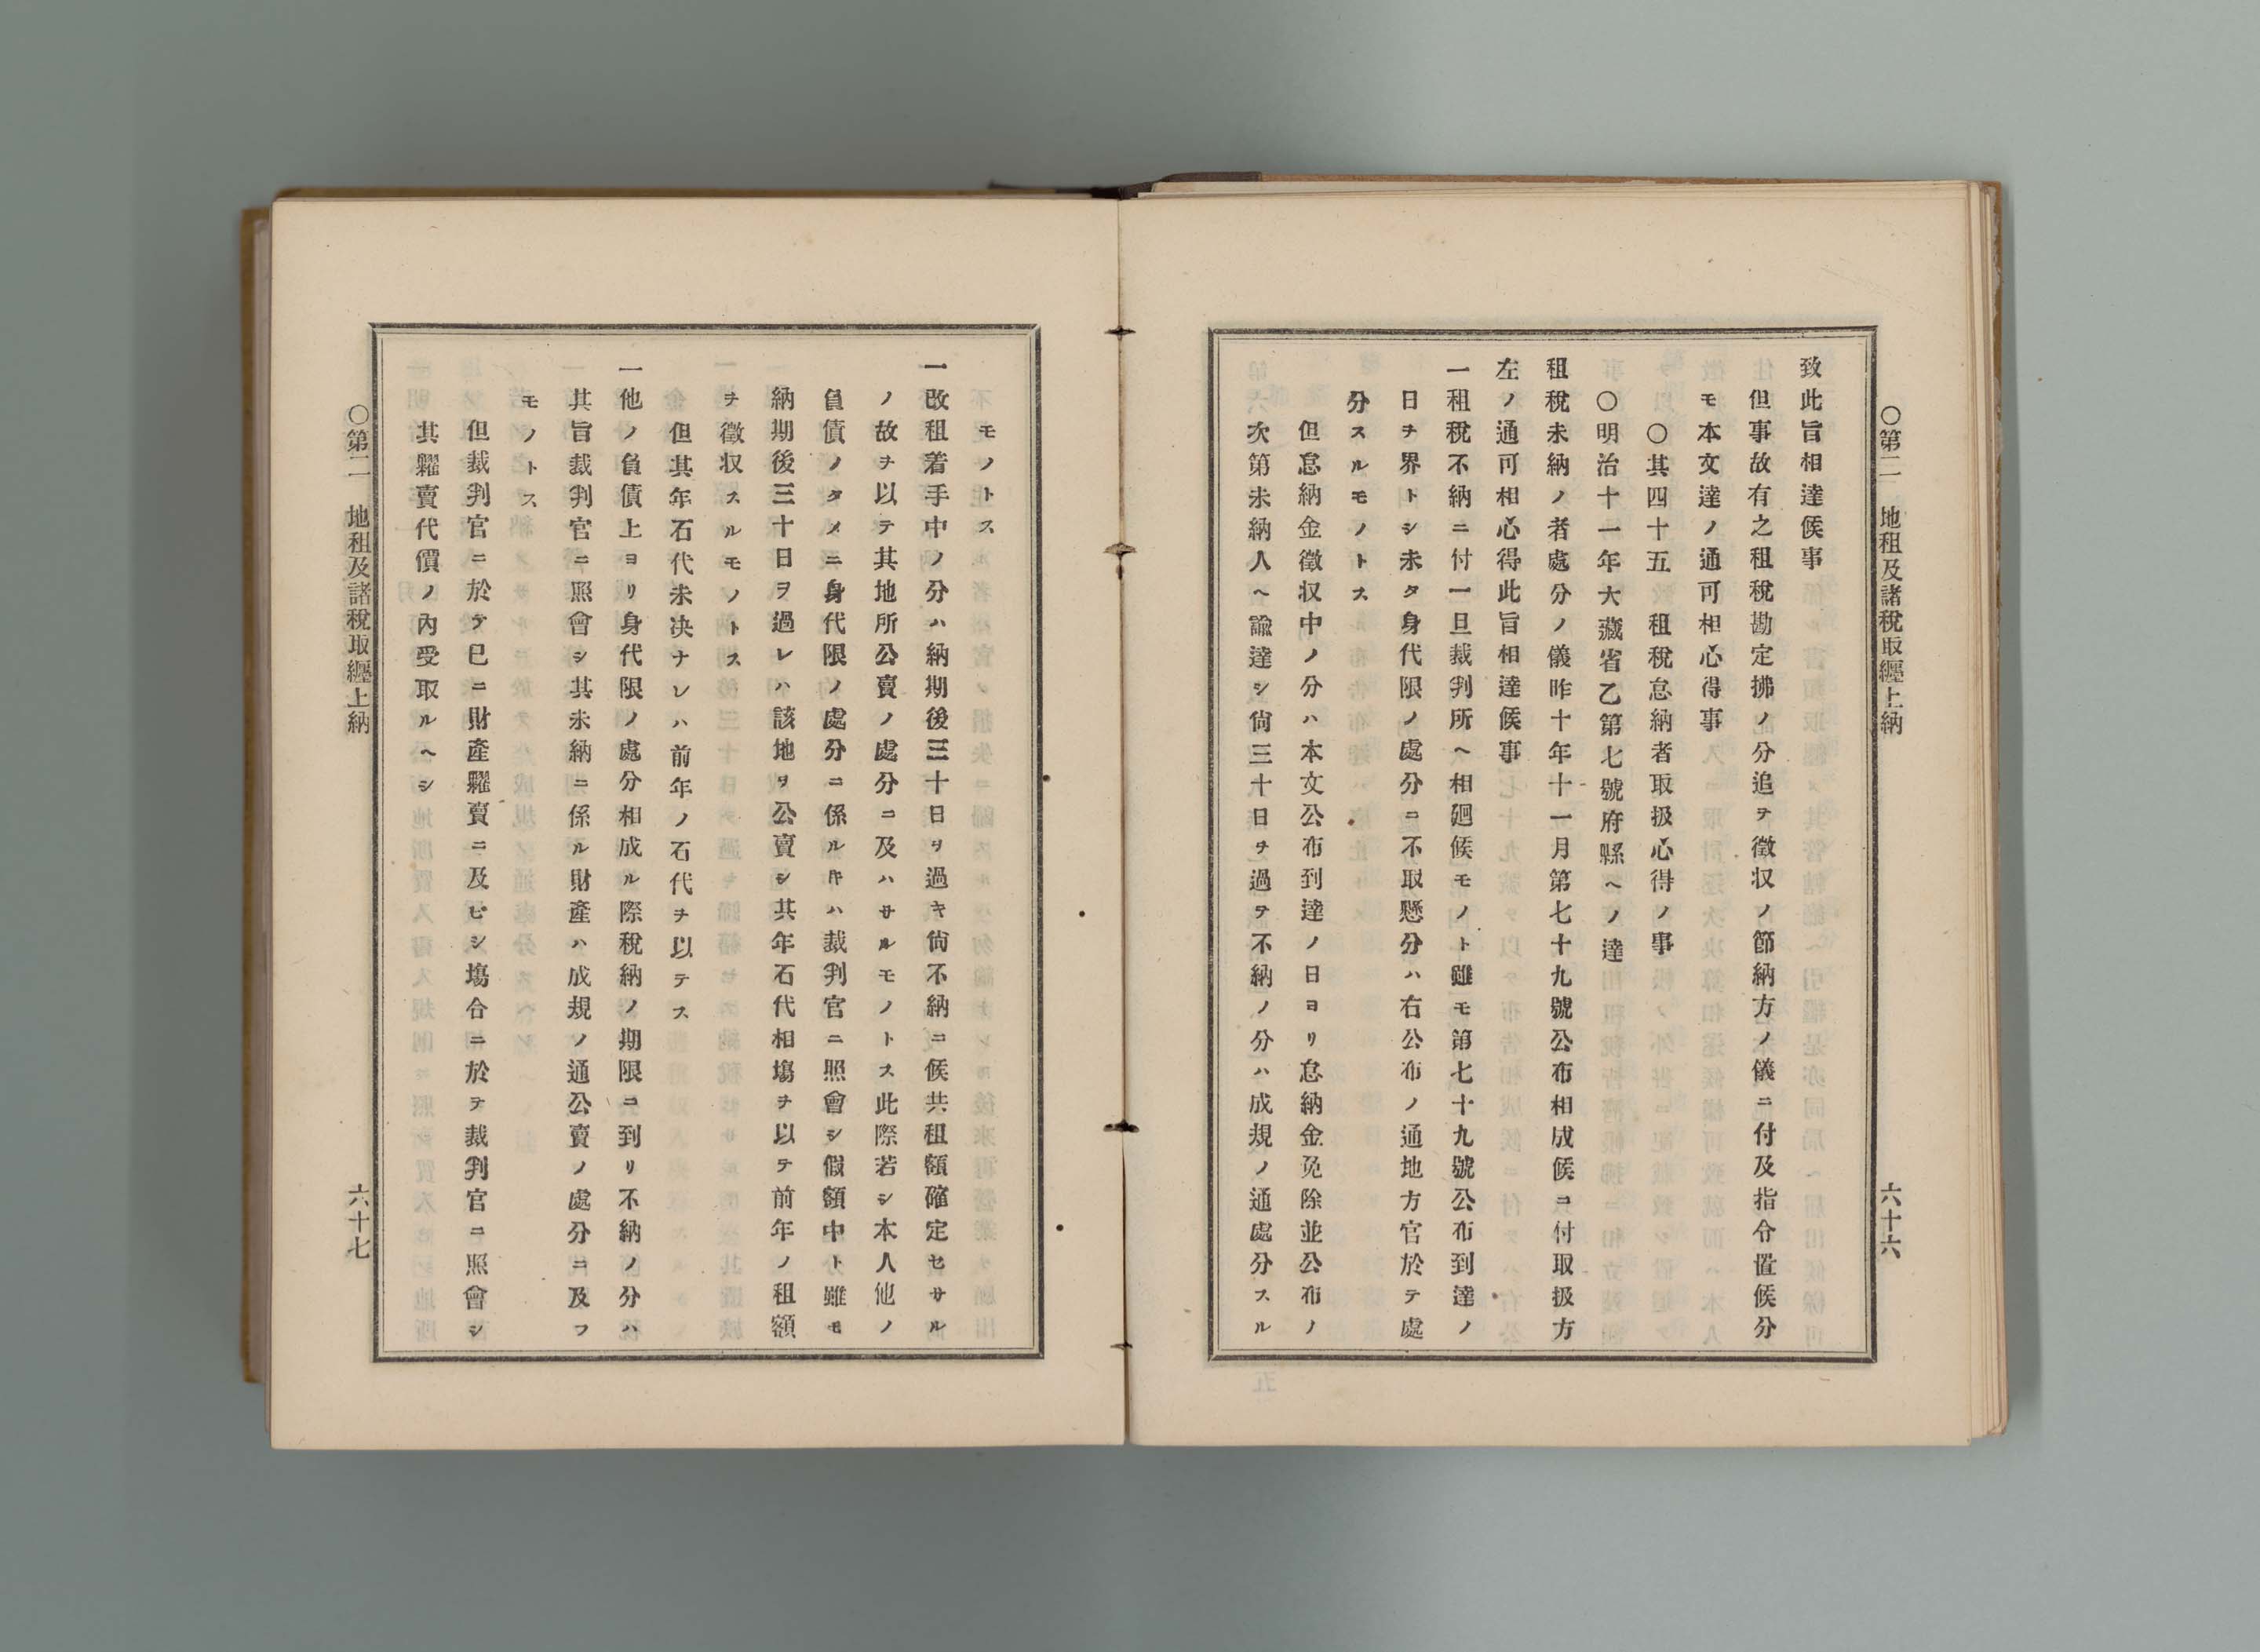 〇第二　地租及諸税取纒上納　六十六
致此旨相達候事
但事故有之租税勘定拂ノ分追ヲ徴収ノ節納方ノ儀ニ付及指令置候分
モ本文達ノ通可相心得事
〇其四十五　租税怠納者取扱心得ノ事
〇明治十一年大藏省乙第七號府縣ヘノ達
租税未納ノ者處分ノ儀昨十年十一月第七十九號公布相成候ニ付取扱方
左ノ通可相心得此旨相達候事
一租税不納ニ付一旦裁判所ヘ相廻候モノト雖モ第七十九號公布到達ノ
日ヲ界トシ未タ身代限ノ處分ニ不取懸分ハ右公布ノ通地方官於テ處
分スルモノトス
但怠納金徴収中ノ分ハ本文公布到達ノ日ヨリ怠納金免除並公布ノ
次第未納人ヘ諭達シ尙三十日ヲ過テ不納ノ分ハ成規ノ通處分スル
モノトス
一改租着手中ノ分ハ納期後三十日ヲ過キ尙不納ニ候共租額確定セサル
ノ故ヲ以テ其地所公賣ノ處分ニ及ハサルモノトス此際若シ本人他ノ
負債ノタメニ身代限ノ處分ニ係ルキハ裁判官ニ照會シ假額中ト雖モ
納期後三十日ヲ過レハ該地ヲ公賣シ其年石代相塲ヲ以テ前年ノ租額
ヲ徴収スルモノトス
但其年石代未决ナレハ前年ノ石代ヲ以テス
一他ノ負債上ヨリ身代限ノ處分相成ル際税納ノ期限ニ到リ不納ノ分ハ
其旨裁判官ニ照會シ其未納ニ係ル財產ハ成規ノ通公賣ノ處分ニ及フ
モノトス
但裁判官ニ於テ已ニ財產糶賣ニ及ヒシ塲合ニ於テ裁判官ニ照會シ
其糶賣代價ノ內受取ルヘシ
〇第二　地租及諸税取纒上納　六十七